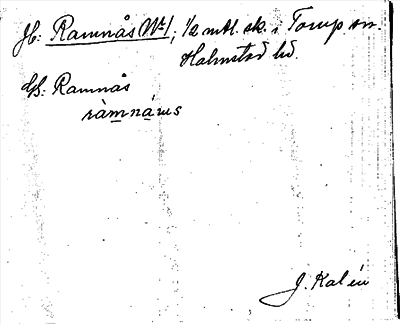 Jb: Ramnås No 1, 1/2 mtl. sk. i Torup sn.
Halmstad hd.
Us. Ramnås
ràmnáus
J. Kalén